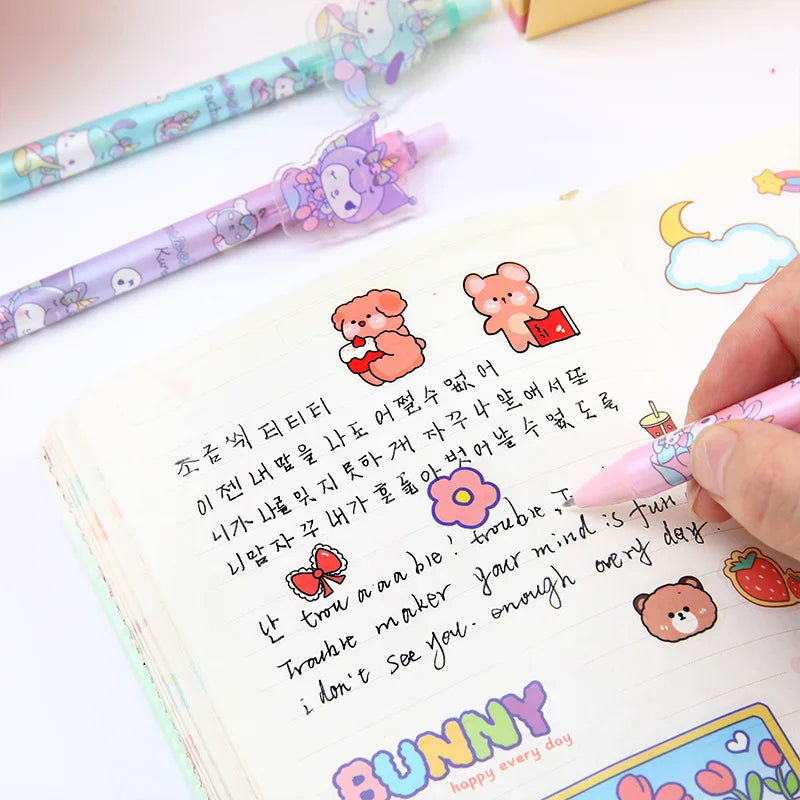 조금씩 티티티
이젠 내맘을 나도 어쩔수 없어
니가 나를 잊지 못하게 자꾸 나 앞에서 또
니맘 자꾸 내가 흔들어 벗어날 수 없도록
난 trou a a a ble! trouble
Trouble maker your mind is fun
i don't see you. enough every day.
BUNNY
happy every day